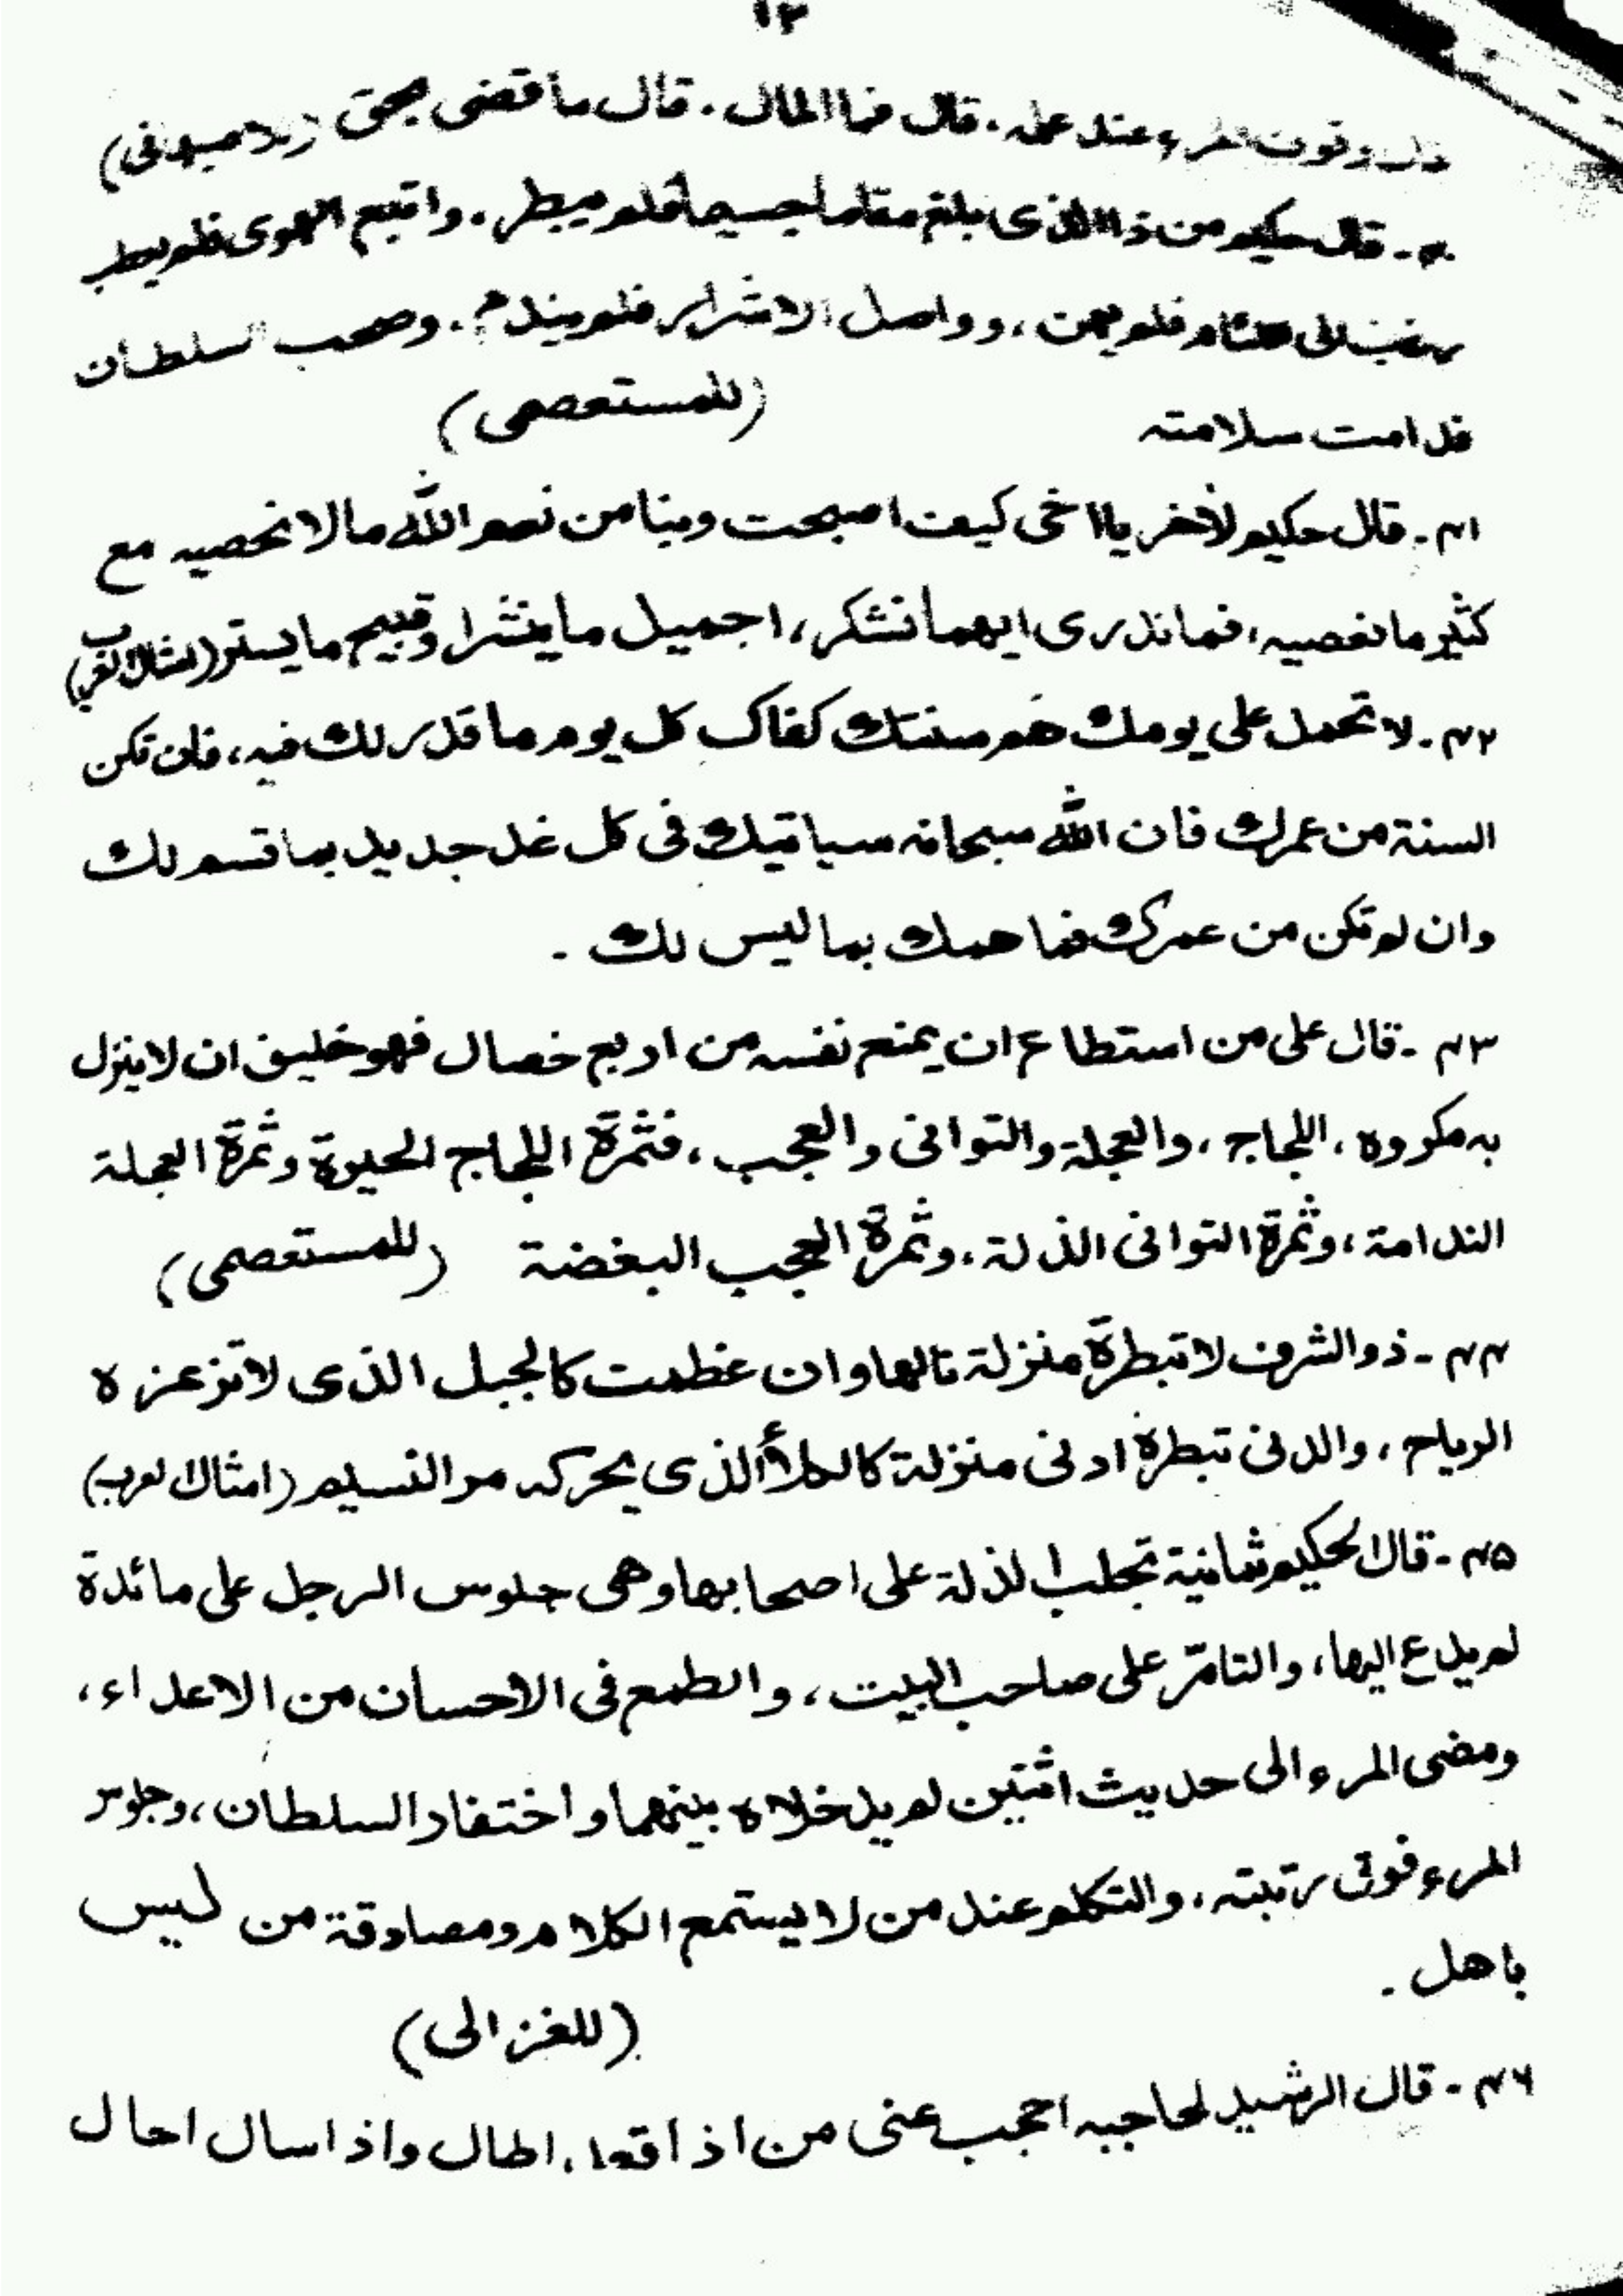 ١٣
وقوف المرء عند علمه. قال فما المال. قال ما قضى بحق (للميدانى)
٤٠ - قال حكيم من ذا الذى بلغ مقاما جسيما فلم يبطر. واتبع الهوى فلم يعطب
فلم يهن، وواصل الاشرار فلم يندم. وصحب السلطان
فدامت سلامته (للمستعصمى)
٤١ - قال حكيم لأخر يا اخى كيف اصبحت وبنا من نعم الله ما لا نحصيه مع
كثير ما نعصيه، فما ندرى ايهما نشكر، اجميل ما ينشرا وقبيح ما يستر (امثال العرب)
٤٢ - لا تحمل على يومك هم سنتك كفاك كل يوم ما قدر لك فيه، فان تكن
السنة من عمرك فان الله سبحانه سياتيك فى كل غد جديد بما قسم لك
وان لم تكن من عمرك فما همك بما ليس لك .
٤٣ - قال على من استطاع ان يمنع نفسه من اربع خصال فهو خليق ان لا ينزل
به مكروه، اللجاج، والعجلة والتوانى والعجب، فثمرة اللجاج الحيرة وثمرة العجلة
الندامة، وثمرة التوانى الذلة. وثمرة العجب البغضة (للمستعصمى)
٤٤ - ذو الشرف لا تبطرة منزلة نالها وان عظمت كالجبل الذى لا تزعزه
الرياح، والدنى تبطرة ادنى منزلة كالكلأ الذى يحركه مر النسيم (امثال العرب)
٤٥ - قال الحكيم ثمانية تجلب الذلة على اصحابها وهى جلوس الرجل على مائدة
لم يدع اليها، والتامّر على صاحب البيت، والطمع فى الاحسان من الاعداء،
ومضى المرء الى حديث اثنين لم يدخلاه بينهما واختفار السلطان، وجلوس
المرء فوق رتبته، والتكلم عند من لا يستمع الكلام ومصادقة من ليس
باهل .
(للغزالى)
٤٦ - قال الرشيد لحاجبه احجب عنى من اذا قعد، اطال واذا سال احال